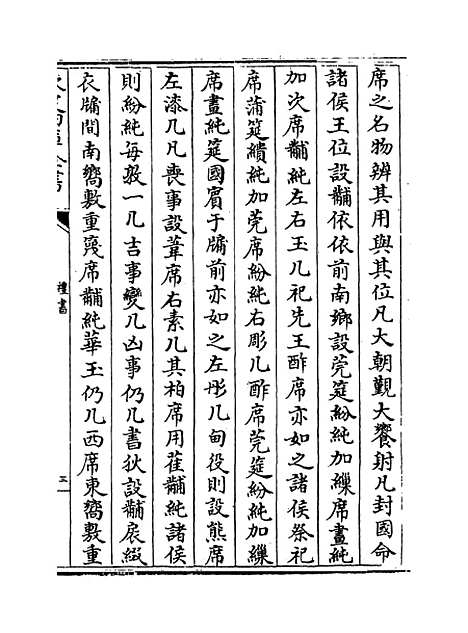 席之名物辨其用與其位凡大朝覲大饗射凡封國命
諸侯王位設黼依依前南鄉設莞筵紛純加繅席畫純
加次席黼純左右玉几祀先王酢席亦如之諸侯祭祀
席蒲筵繢純加莞席紛純右彫几酢席莞筵紛純加繅
席畫純筵國賓于牖前亦如之左彤几甸役則設熊席
左漆几凡喪事設葦席右素几其柏席用萑黼純諸侯
則紛純每敦一几吉事變几凶事仍几書狄設黼扆綴
衣牖間南嚮敷重篾席黼純華玉仍几西席東嚮敷重
禮書
三